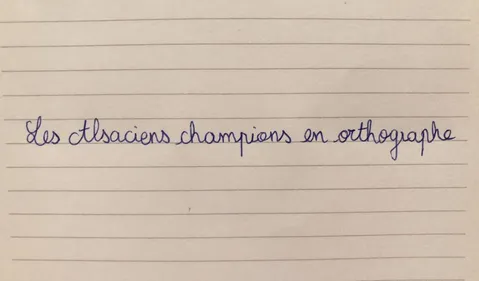 Les Alsaciens champions en orthographe